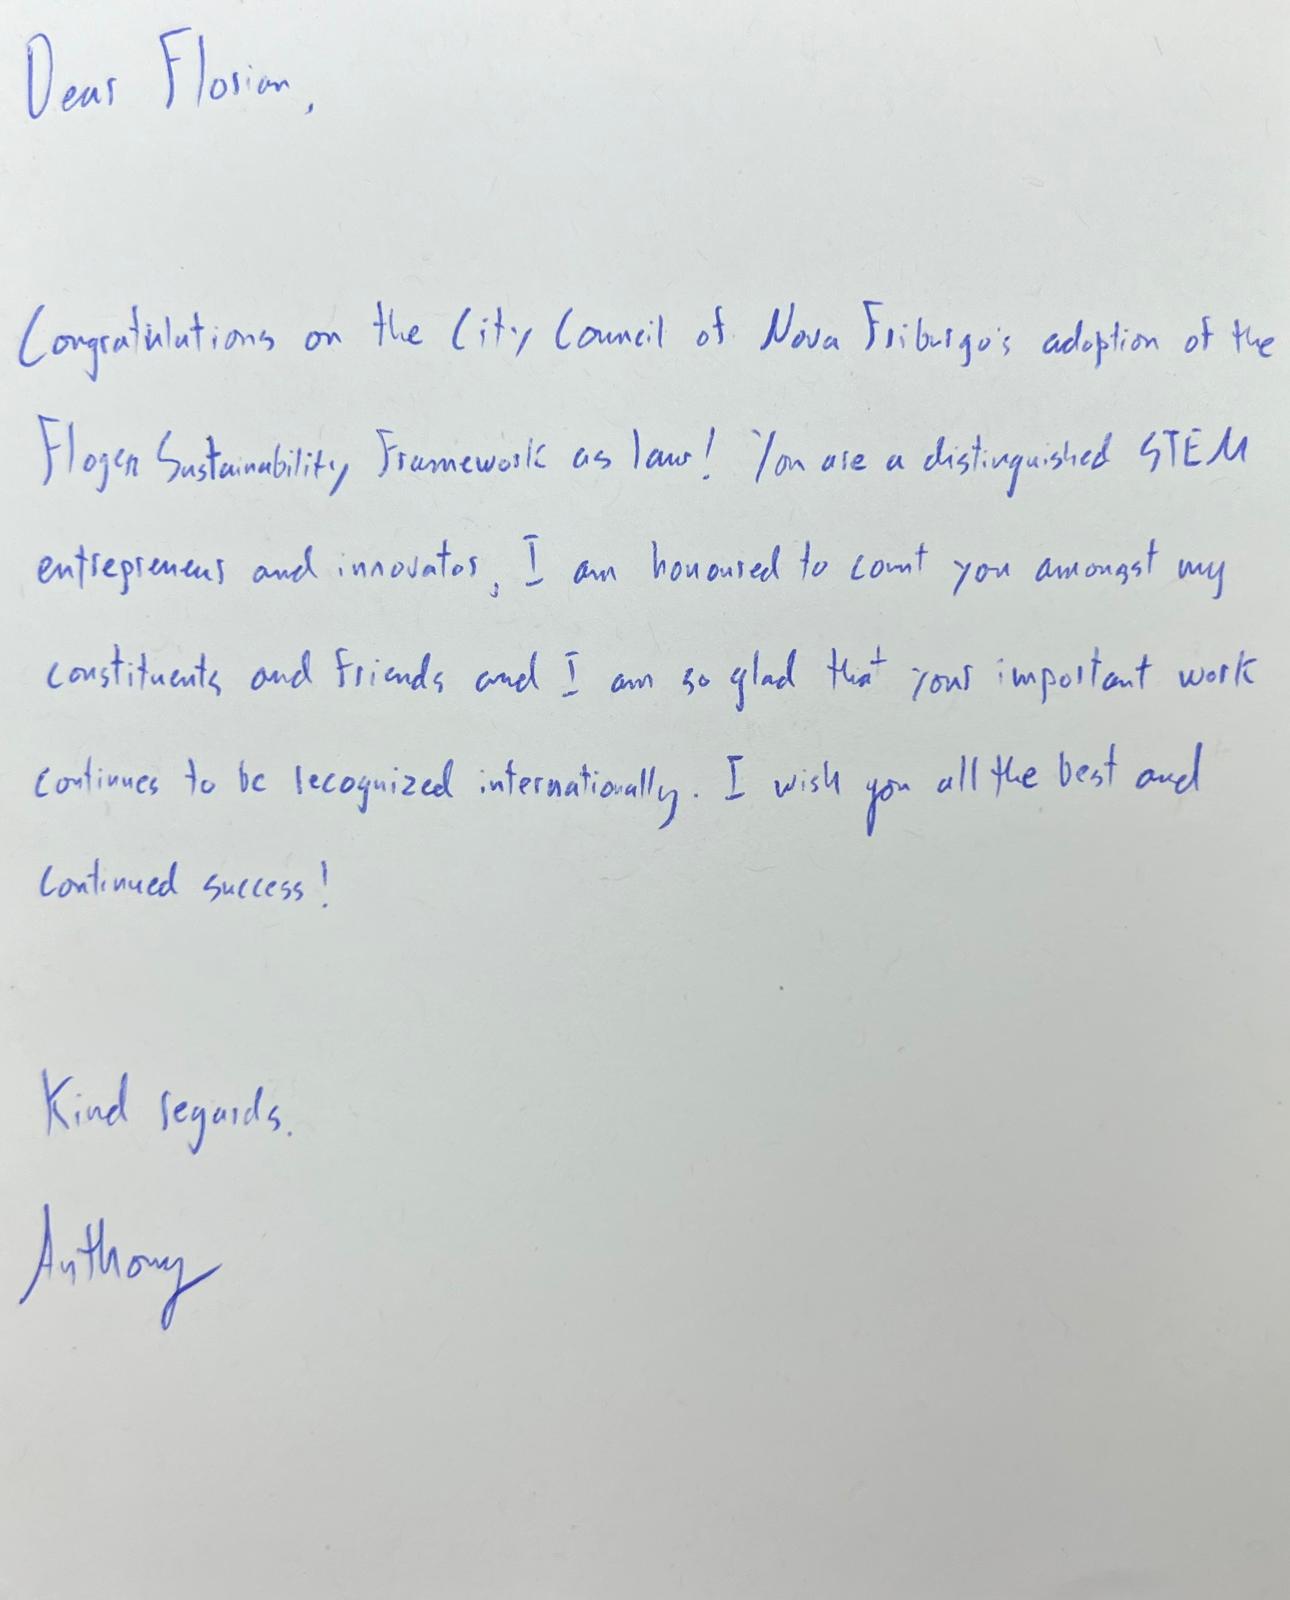 Dear Florian,
Congratulations on the City Council of Nova Friburgo's adoption of the
Flogen Sustainability Framework as law! You are a distinguished STEM
entrepreneur and innovator, I am honoured to count you amongst my
constituents and friends and I am so glad that your important work
continues to be recognized internationally. I wish you all the best and
continued success!
Kind regards.
Anthony